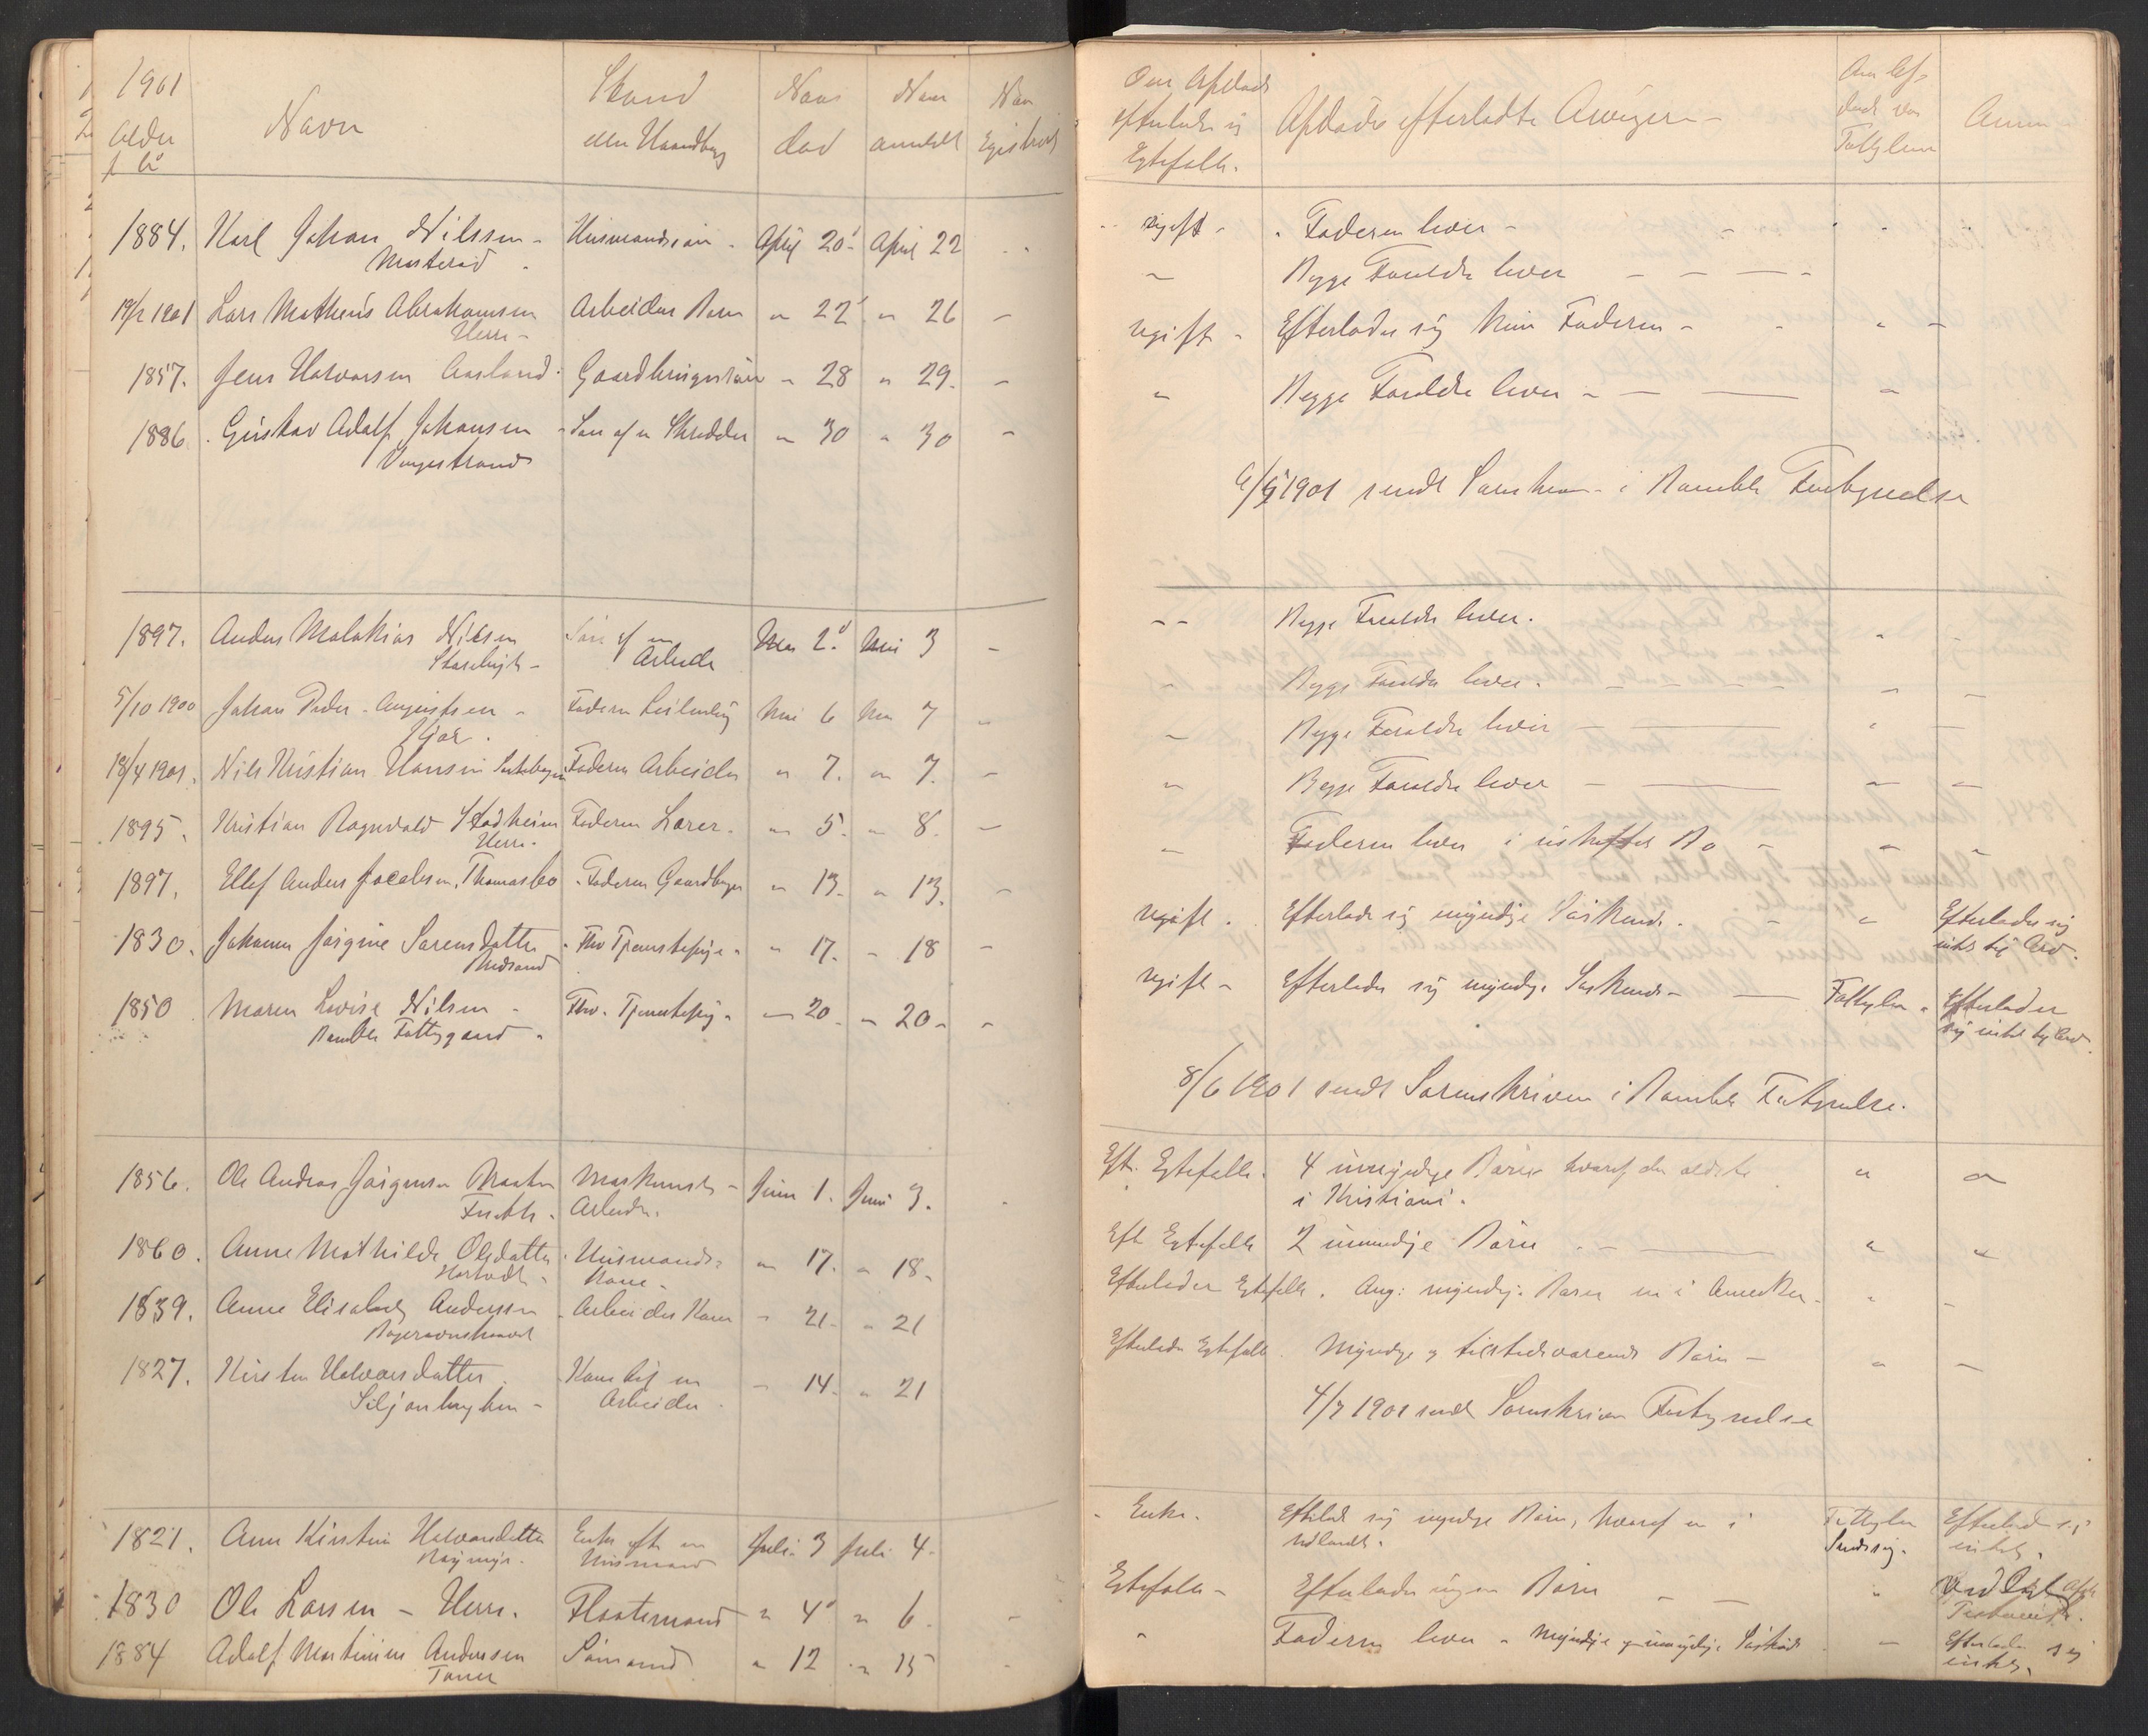 1901
Alder
f. år
Navn
Stand
eller Haandtering
Naar
død
Naar
anmeldt
Naar
1884. Karl Johan Nilssen - Husmandssøn - April 20' - April 22
19/2 1901 Lars Mathæus Abrahamsen Arbeider Barn " 22' " 26 -
Herre -
1857. Jens Halvorsen Aasland. Gaardbrugersøn - 28 " 29. -
1886. Gustav Adolf Johansen - Søn af en Skrædder " 30 " 30 -
Vinjestrand
1897. Anders Malakias Nilsen Søn af en Arbeider Mai 2' Mai 3 -
5/10 1900 Johan Peder Augustsen - Faderen Leilending Mai 6 Mai 7 -
18/4 1901. Nils Kristian Hansen Faderen Arbeider " 7. " 7. -
1895. Kristian Ragnvald Stadheim Faderen Lærer. " 5. - 8. -
Herre.
1897. Ellef Anders Jacobsen, Thomasbo - Faderen Gaardbruger " 13. " 13.
1830. Johanne Jørgine Sørensdatter - Fhv Tjenestepige - " 17. - 18 -
1850 Maren Lovise Nilsen - Fhv. Tjenestepige - - 20. - 20 - -
Bamble Fattiggaard -
1856. Ole Andreas Jørgensen Maskinist - Juni 1. Juni 3.
Arbeider.
1860. Anne Mathilde Olsdatter - Husmands- " 17. - 18 -
Kone -
1839. Anne Elisabeth Andersen - Arbeider Kone - 21 - - 21
1827. Kirsten Halvorsdatter. Kone til en - 14. - 21
Arbeider.
1821. Ane Kirstine Halvorsdatter Enke efter en Husmand Juli 3 Juli 4.
1830 Ole Larsen - Herre. Flaatemand " 4' " 6. -
1884 Adolf Martinius Andersen Sømand " 12 " 15
Om Afdøde
efterlader sig
Egtefælle.
Afdødes efterladte Arvinger -
Om Af-
døde var
Fattiglem
Anm
ugift - . Faderen lever -
- Begge Forældre lever - - - -
ugift - Efterlader sig kun Faderen - - " -
- Begge Forældre lever - - -
4/5 1901 sendt Sorenskr - i Bamble Fortegnelse
- - Begge Forældre lever. " -
- Begge Forældre lever. - -
- Begge Forældre lever - -
- Begge Forældre lever - - -
- Faderen lever i uskiftet Bo - - -
ugift. Efterlader sig myndige Søskende. - " Efterlader sig
intet til Arv.
ugift - Efterlader sig myndige Søskende - - Fattiglem - Efterlader
sig intet til Arv.
8/6 1901 sendt Sorenskriveren i Bamble Fortegnelse.
Eft. Egtefælle. 4 umyndige Børn hvoraf den ældste " "
i Kristiania.
Eft Egtefælle 2 umyndige Børn - - " "
Efterlader Egtefælle. myndige Børn en i Amerika - " -
Efterlader Egtefælle. Myndige og tilstedeværende Børn - " -
4/7 1901 sendt Sorenskriver Fortegnelse
- Enke. Efterlod sig myndige Børn, hvoraf en i Fattiglem Efterlod sig
Udlandet. intet.
Egtefælle - Efterlader ingen Børn - - "
Testament.
" Faderen lever - Myndige og umyndige Søskende - Efterlader sig
intet.